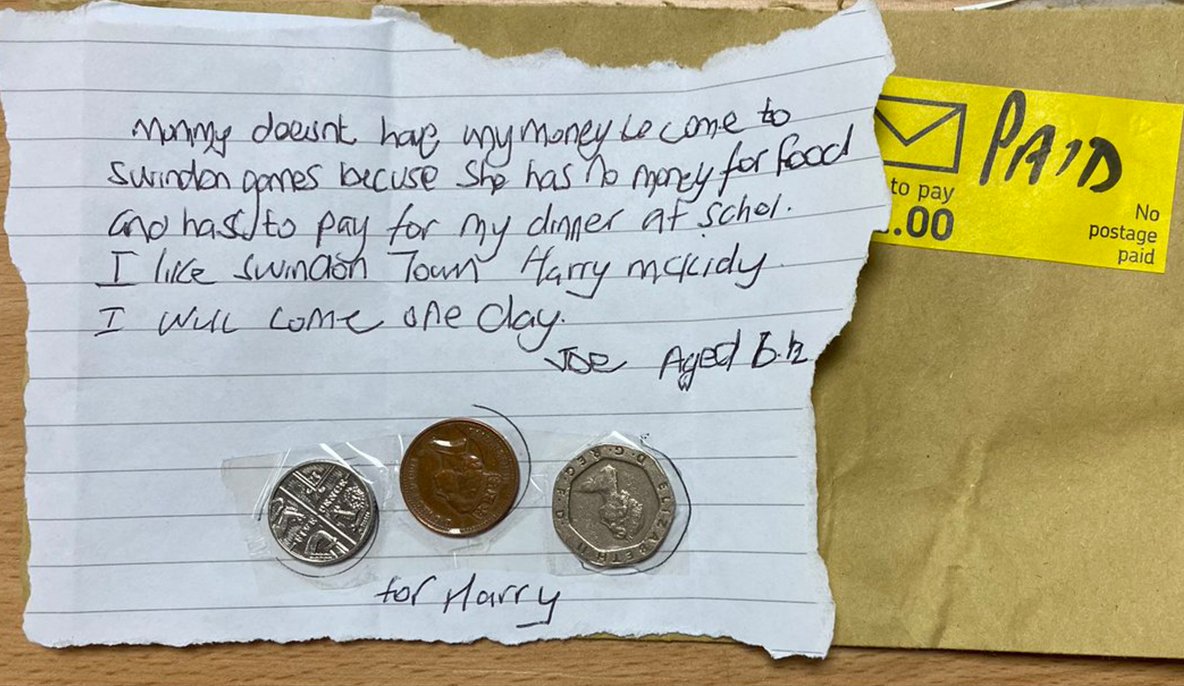 Mummy doesnt have any money to come to
Swindon games becuse She has no money for Food
and hass to pay for my dinner at schol.
I like swindon Town Harry mckidy
I will come one day.
JOE Aged 6.½
for Harry
PAID
to pay
.00
No
postage
paid
ELIZABETH II D·G·REG·F·D